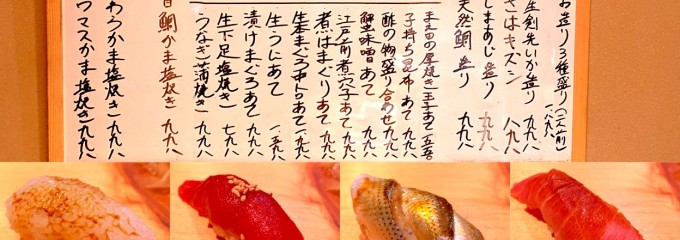 お造り3種盛り(二人前)一.八八
生剣先いか造り 九九八
さはキズシ 八九八
しまあじ造り 九九八
天然鯛造り 九九八
玉子の厚焼き(玉子あて)五五
子持ち昆布あて 九九八
酢の物盛り合わせ九九八
蟹味噌あて 九九八
江戸前煮穴子あて 九九八
煮はまぐりあて 九九八
生本まぐろ中トロあて 一.九八
生うにあて 一.五九八
漬けまぐろあて 九九八
生下足塩焼き 七九八
うなぎ蒲焼き 九九八
目鯛かま塩焼き 九九八
わらかま塩焼き 九九八
マスかま塩焼き 九九八